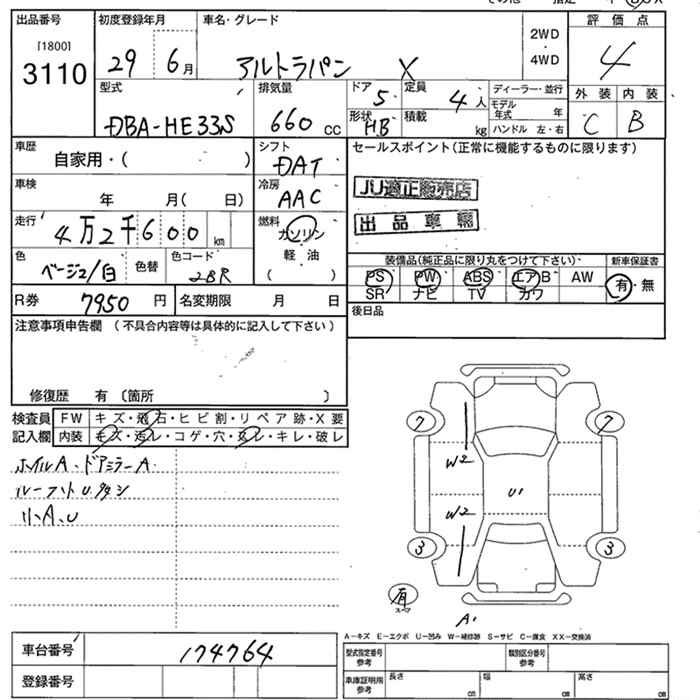 出品番号 初度登録年月 車名・グレード 2WD・4WD 評価点
[1800]
3110 29 6月 アルトラパン X 4
型式 排気量 ドア 5 定員 4人 ディーラー・並行 外装 内装
DBA-HE33S 660 CC 形状 HB 積載 kg モデル年式 年 C B
ハンドル 左・右
車歴 シフト セールスポイント(正常に機能するものに限ります)
自家用・( ) DAT
車検 冷房 JU適正販売店
年 月( 日) AAC
走行 燃料 出品車輌
4万2千600km ガソリン
軽油
( )
色 色替 色コード 装備品(純正品に限り丸をつけて下さい) 新車保証書
ベージュ/白 2BR PS PW ABS エアB AW 有・無
SR ナビ TV カワ
R券 7950円 名変期限 月 日 後日品
注意事項申告欄 (不具合内容等は具体的に記入して下さい)
修復歴 有 〔箇所 〕
検査員 FW キズ・飛石・ヒビ割・リペア跡・X要
記入欄 内装 キズ・汚レ・コゲ・穴・スレ・キレ・破レ
ホイルA・ドアミラーA
小A、U
7 7
W2
U1
W2
3 3
有
A1
A-キズ E-エクボ U-凹み W-補修跡 S-サビ C-腐食 XX-交換済
車台番号 174764 型式指定番号参考 類別区分番号参考
登録番号 車庫証明用参考 長さ cm 幅 cm 高さ cm